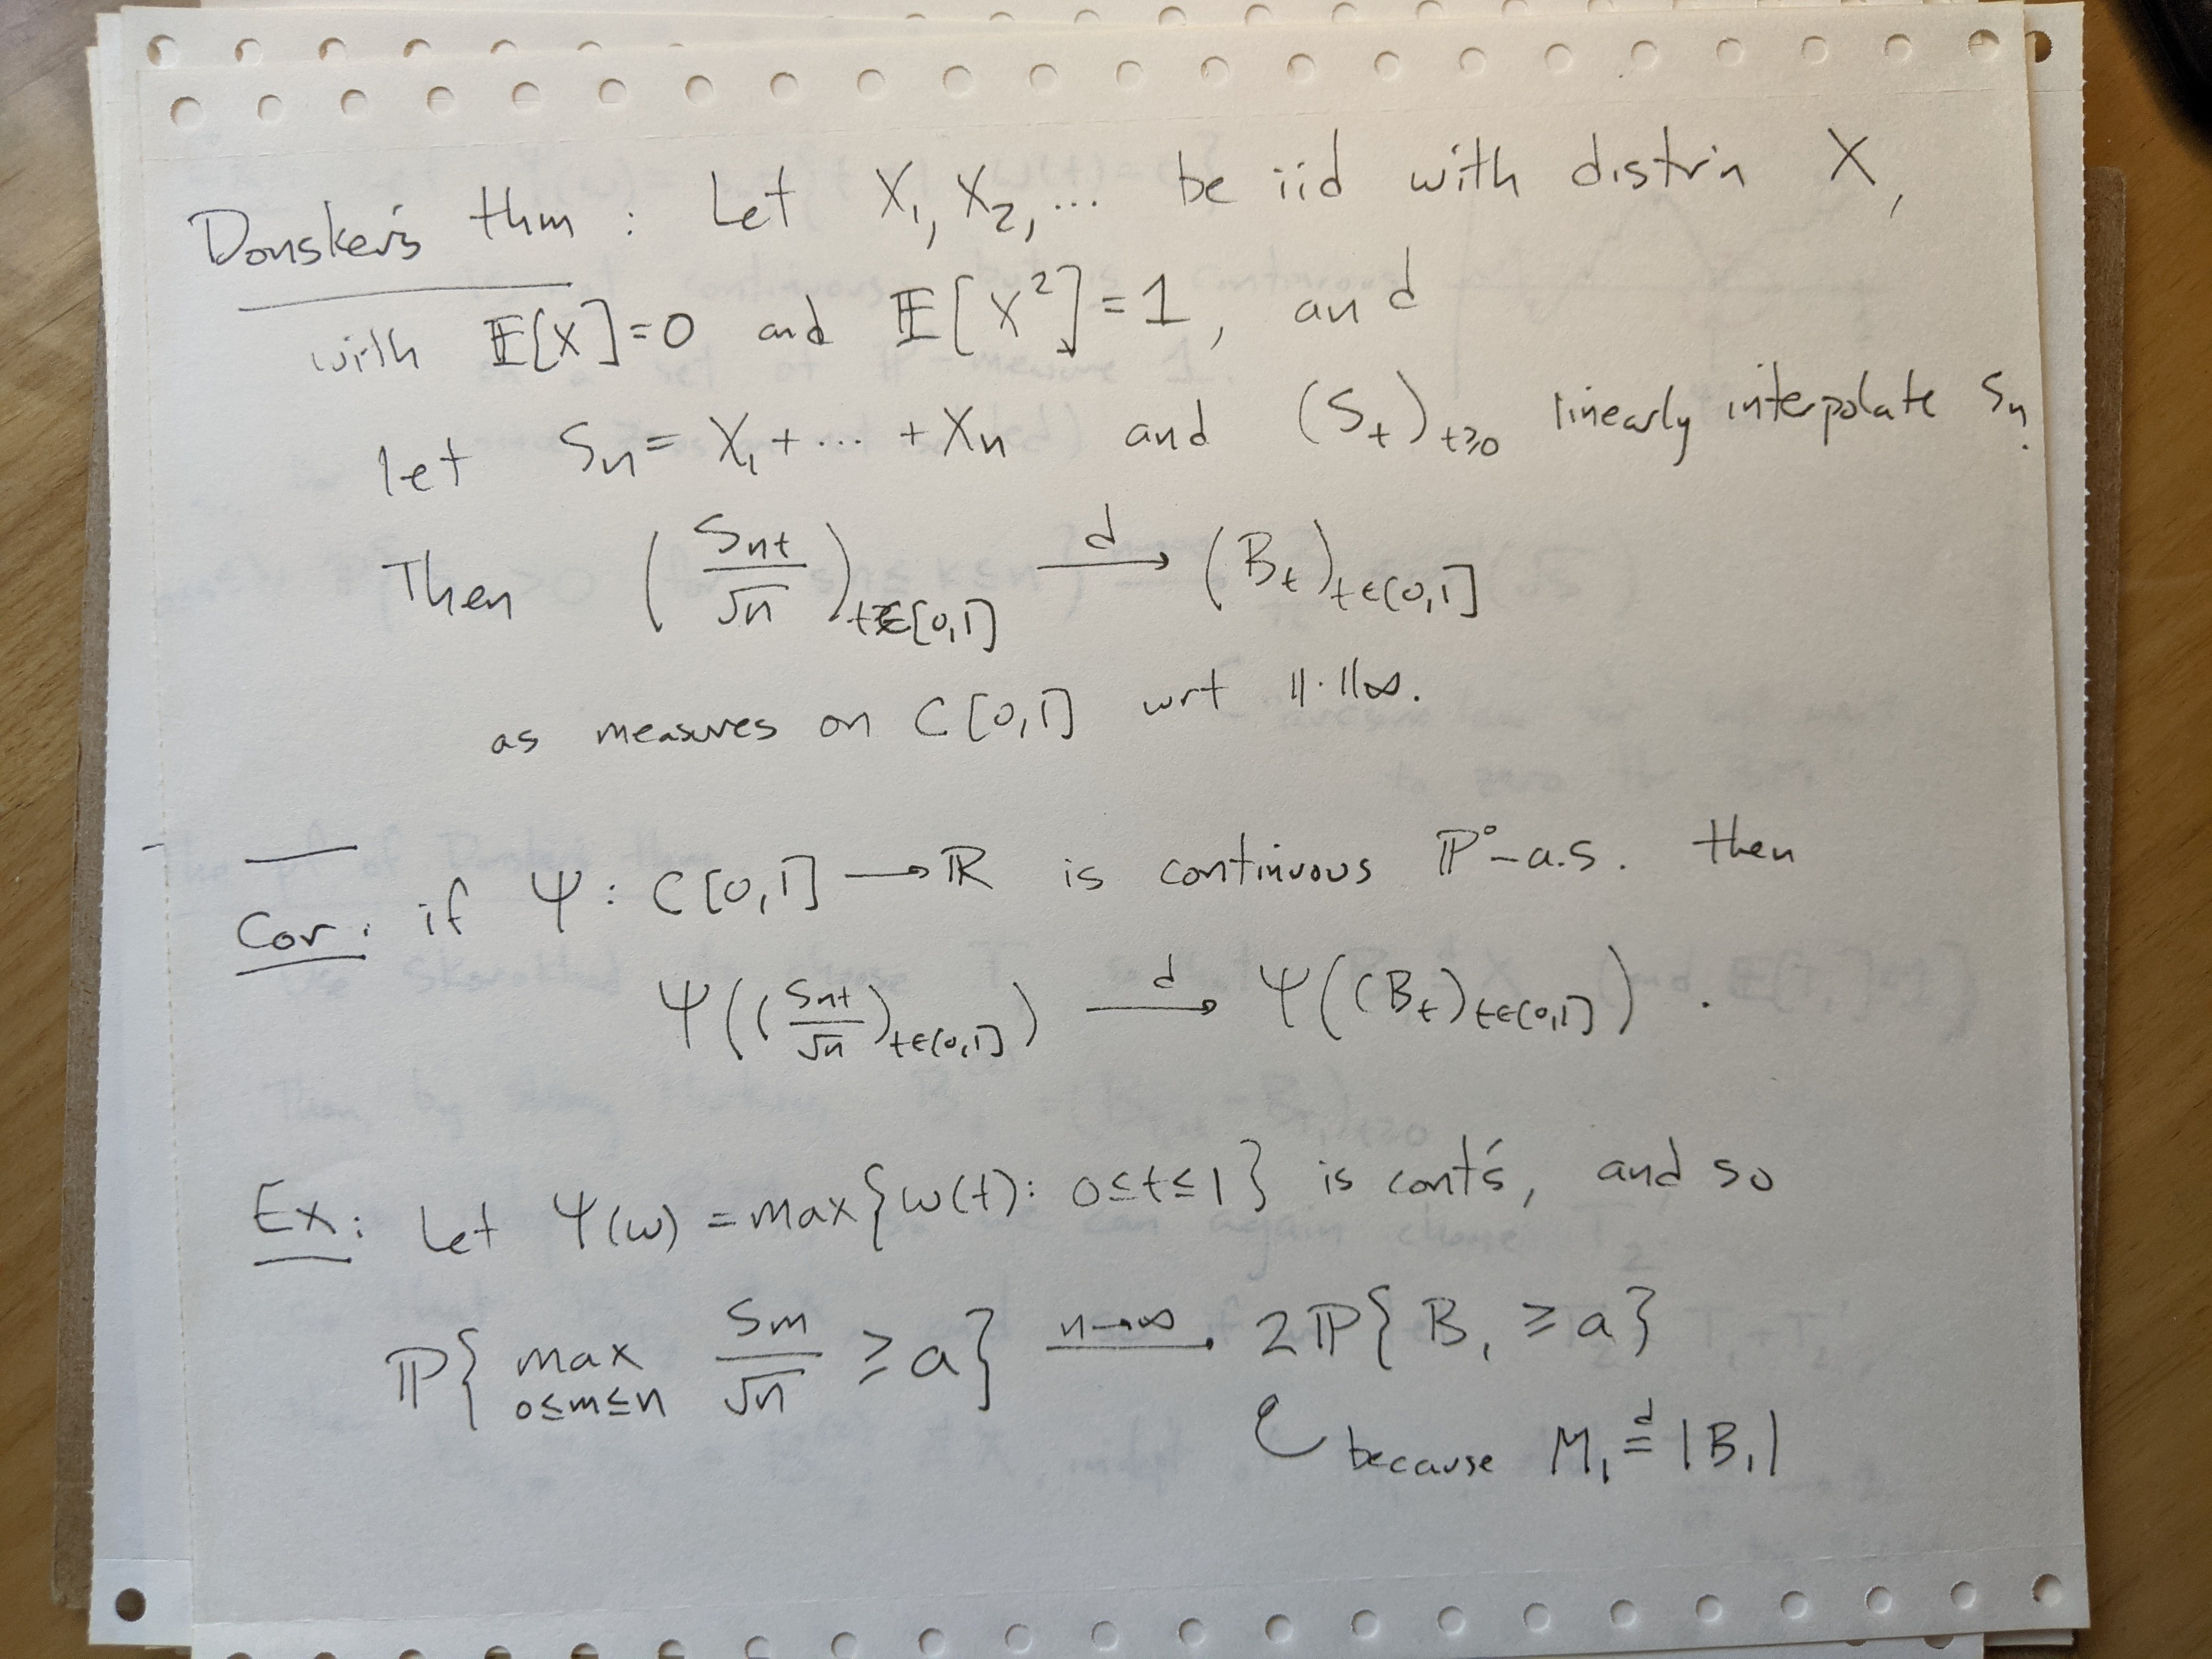 Donsker's thm : Let X₁, X₂, ... be iid with distr'n X,
with 𝔼[X]=0 and 𝔼[X²]=1, and
let Sₙ = X₁ + ... + Xₙ and (Sₜ)ₜ≥₀ linearly interpolate Sₙ.
Then (Sₙₜ/√n)_{t∈[0,1]} →^d (Bₜ)_{t∈[0,1]}
as measures on C[0,1] wrt ‖·‖∞.
Cor: if Ψ: C[0,1] → ℝ is continuous ℙ⁰-a.s. then
Ψ((Sₙₜ/√n)_{t∈[0,1]}) →^d Ψ((Bₜ)_{t∈[0,1]}) .
Ex: Let Ψ(ω) = max{ω(t): 0≤t≤1} is cont's, and so
ℙ{ max_{0≤m≤n} Sₘ/√n ≥ a} →^{n→∞} 2ℙ{B₁ ≥ a}
because M₁ =^d |B₁|